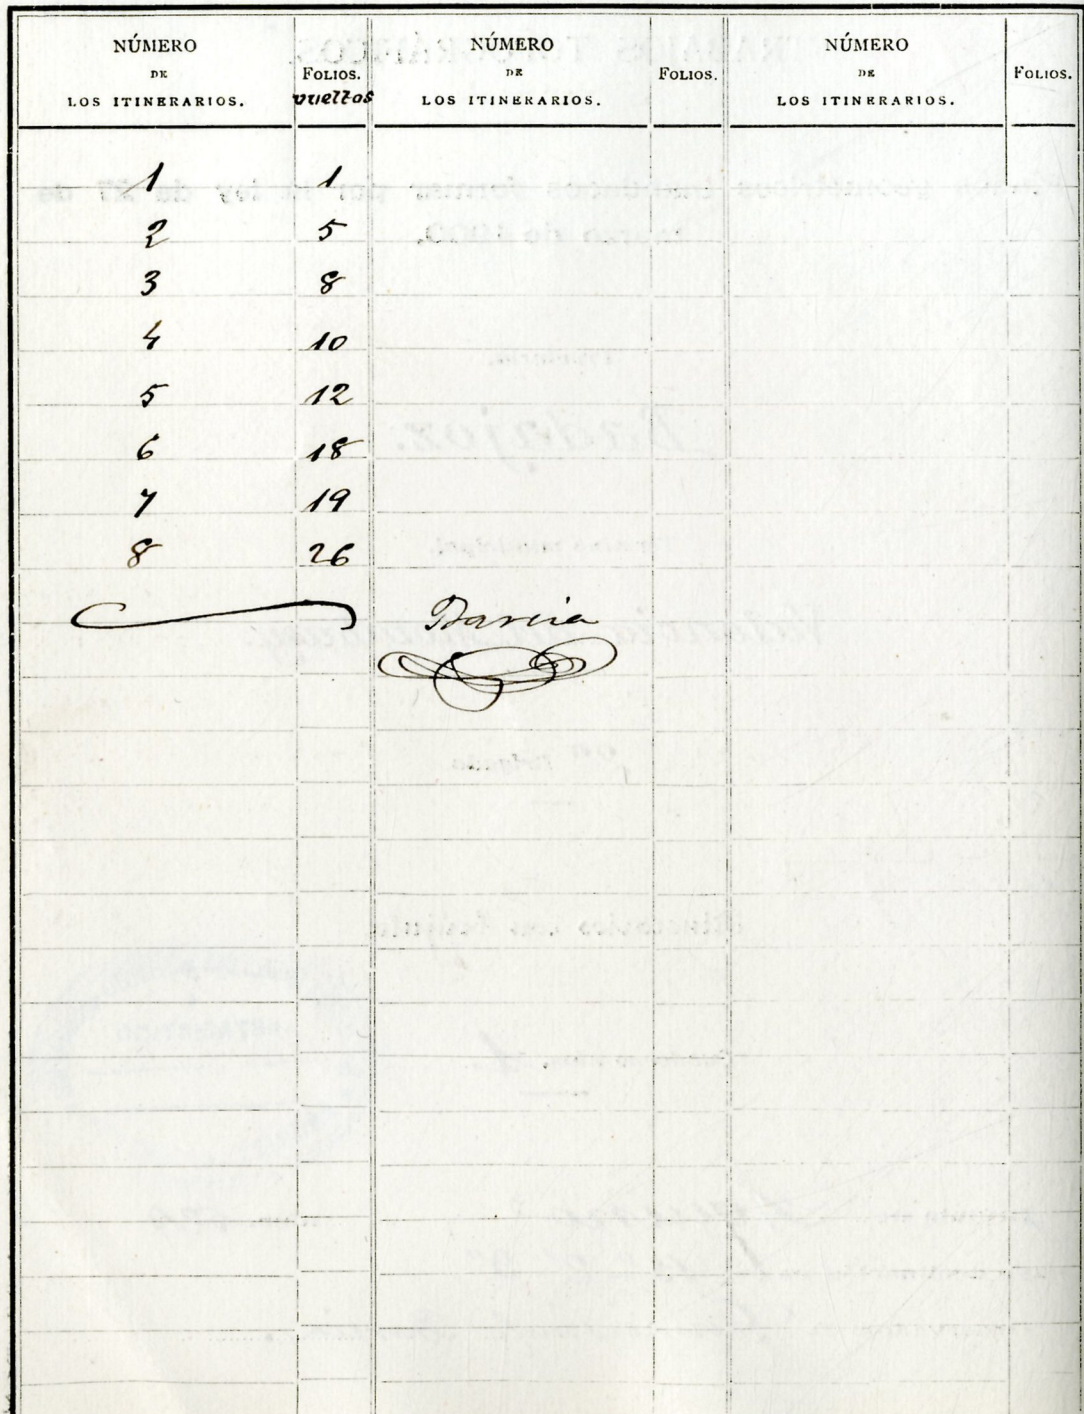 NÚMERO
DE
LOS ITINERARIOS.
FOLIOS.
vueltos
NÚMERO
DE
LOS ITINERARIOS.
FOLIOS.
NÚMERO
DE
LOS ITINERARIOS.
FOLIOS.
1 1
2 5
3 8
4 10
5 12
6 18
7 19
8 26